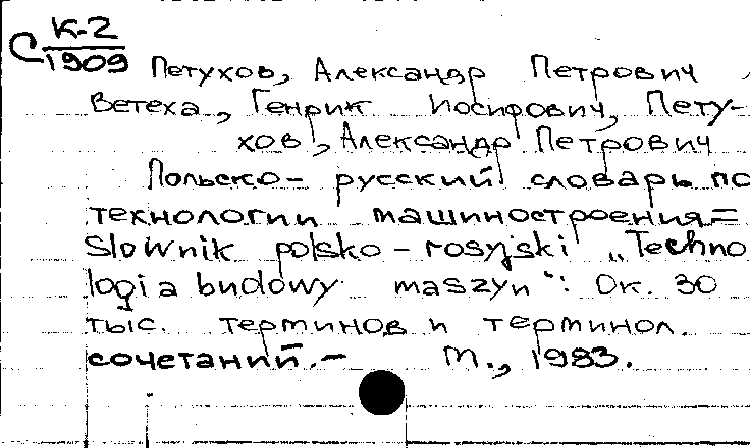 С К-2
1909
Петухов, Александр Петрович
Ветеха, Генрик Иосифович, Пету-
хов, Александр Петрович
Польско-русский словарь по
технологии машиностроения=
Słownik polsko-rosyjski „Techno
logia budowy maszyn“: Ок. 30
тыс. терминов и терминол.
сочетаний.- М., 1983.